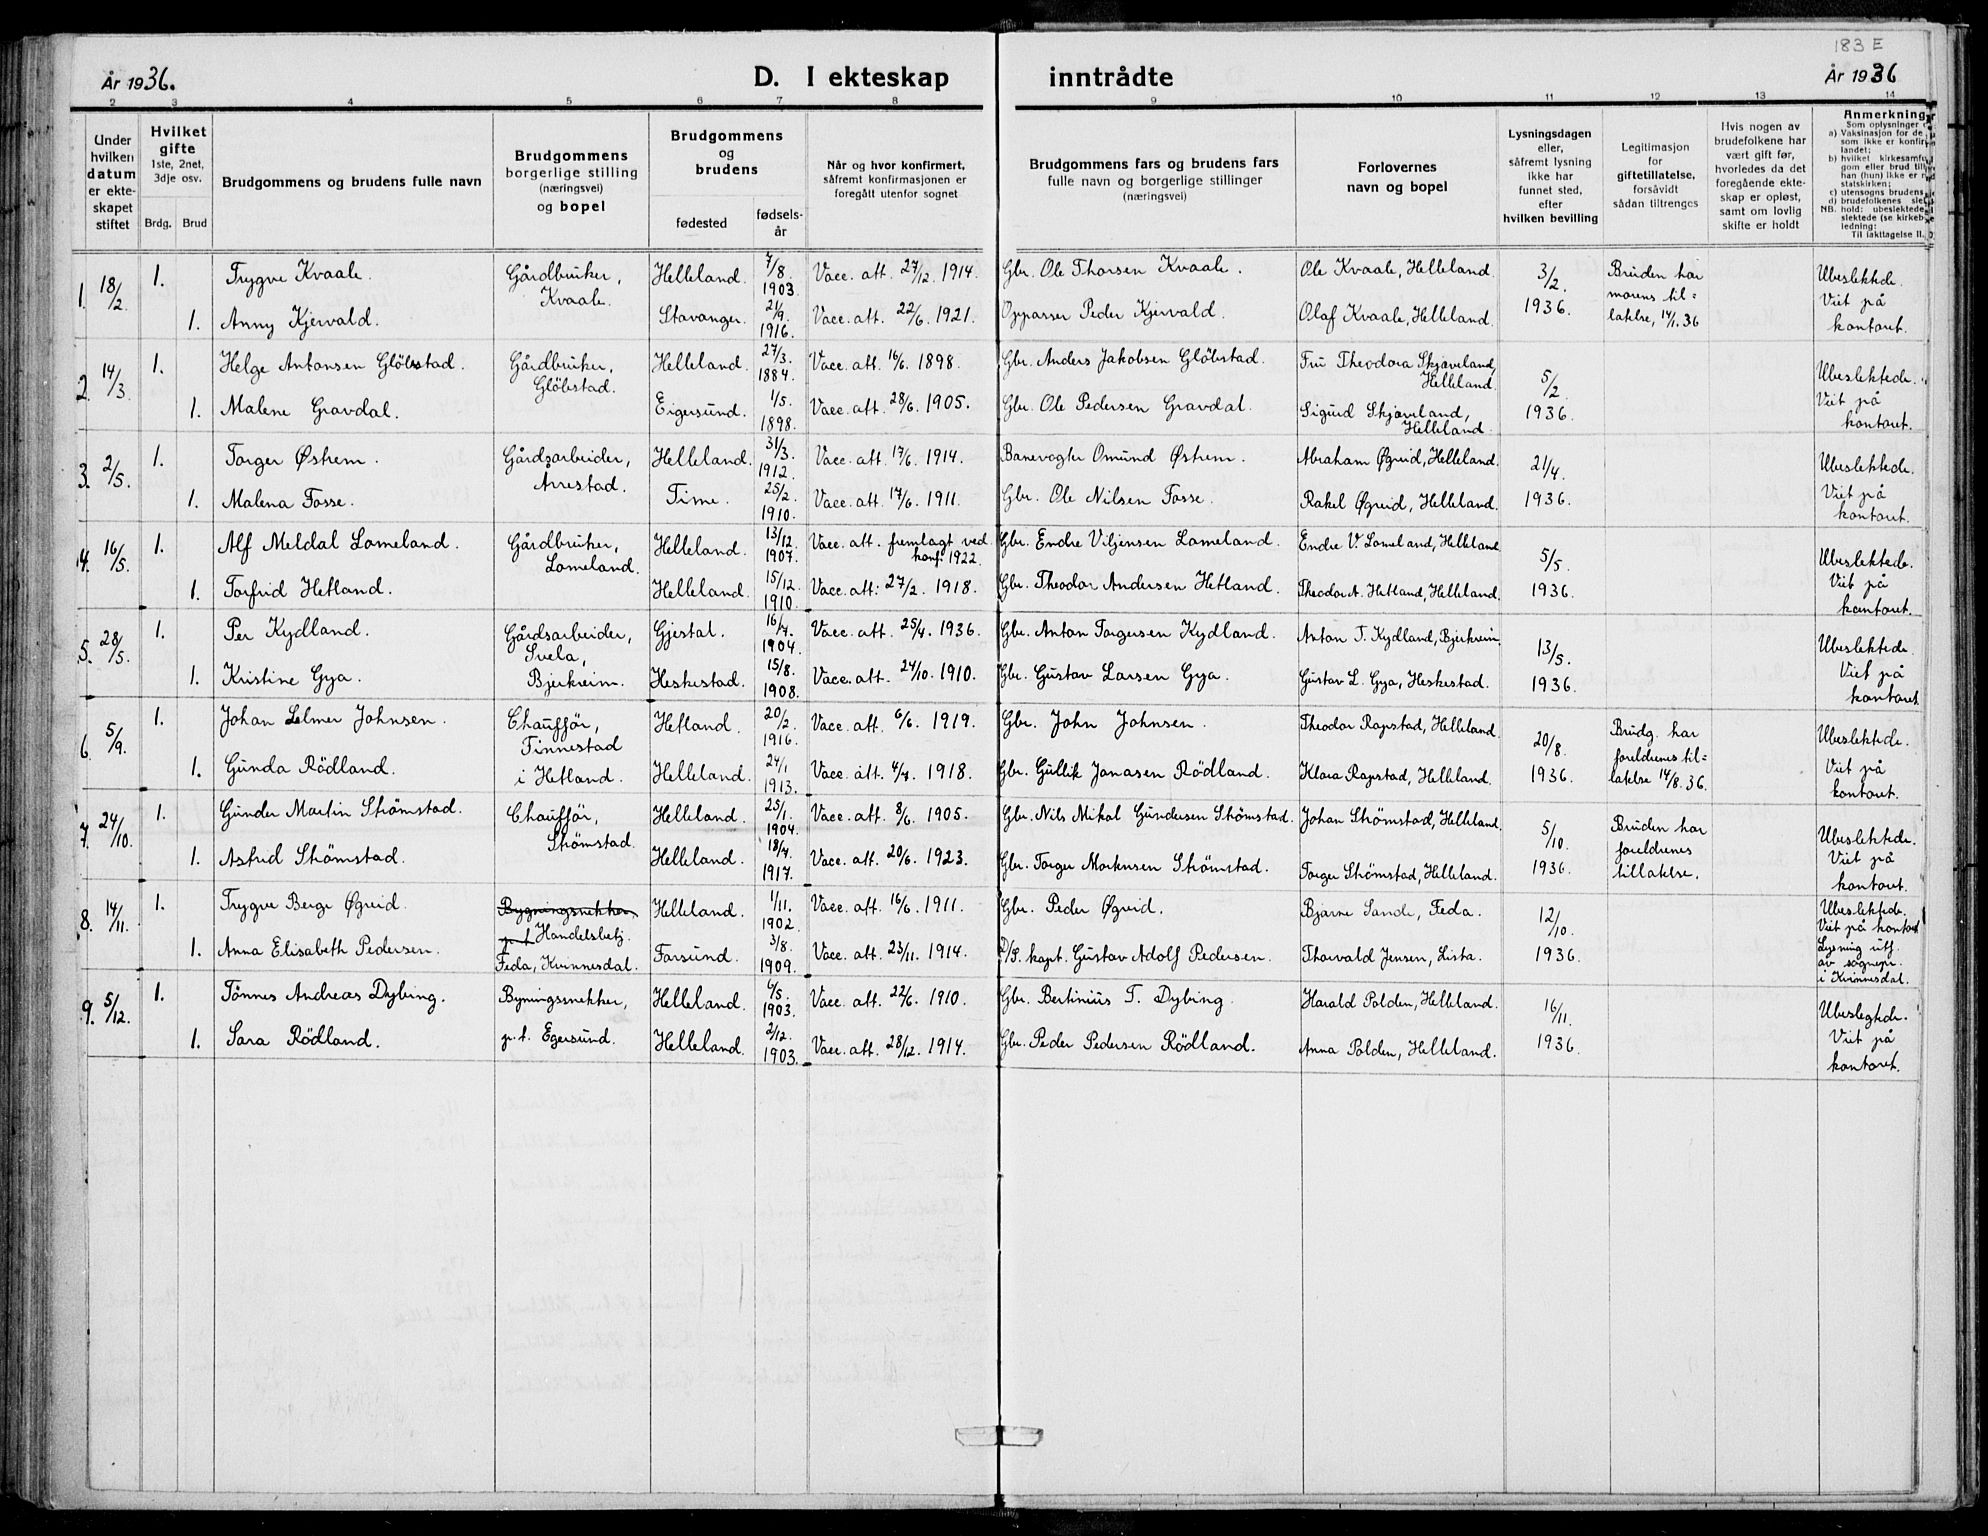 183 E
År 1936.
D. I ekteskap inntrådte
År 1936
2 3 4 5 6 7 8 9 10 11 12 13 14
Under hvilken datum er ekteskapet stiftet
Hvilket gifte
1ste, 2net, 3dje osv.
Brdg. Brud
Brudgommens og brudens fulle navn
Brudgommens borgerlige stilling (næringsvei) og bopel
Brudgommens og brudens
fødested
fødselsår
Når og hvor konfirmert, såfremt konfirmasjonen er foregått utenfor sognet
Brudgommens fars og brudens fars fulle navn og borgerlige stillinger (næringsvei)
Forlovernes navn og bopel
Lysningsdagen eller, såfremt lysning ikke har funnet sted, efter hvilken bevilling
Legitimasjon for giftetillatelse, forsåvidt sådan tiltrenges
Hvis nogen av brudefolkene har vært gift før, hvorledes da det foregående ekteskap er opløst, samt om lovlig skifte er holdt
Anmerkning
1. 18/2 1. Trygve Kvaale. Gårdbruker, Kvaale. Helleland. 7/8. 1903. Vacc. att. 27/12. 1914. Gbr. Ole Thorsen Kvaale. Ole Kvaale, Helleland. 3/2. 1936. Bruden har morens tillatelse, 14/1.36 Ubeslektede. Viet på kontoret.
1. Anny Kjervald. Stavanger. 21/9. 1916. Vacc. att. 22/6. 1921. Oppasser Peder Kjervald. Olaf Kvaale, Helleland.
2. 14/3. 1. Helge Antonsen Glöbstad. Gårdbruker, Glöbstad. Helleland. 27/3. 1884. Vacc. att. 16/6. 1898. Gbr. Anders Jakobsen Glöbstad. Fru Theodora Skjæveland, Helleland. 5/2. 1936. Ubeslektede. Viet på kontoret.
1. Malene Gravdal. Eigersund. 1/5. 1898. Vacc. att. 28/6. 1905. Gbr. Ole Pedersen Gravdal. Sigurd Skjæveland, Helleland.
3. 2/5. 1. Torger Østrem. Gårdsarbeider, Årrestad. Helleland. 31/3. 1912. Vacc. att. 17/6. 1914. Banevogter Omund Østrem. Abraham Øgreid, Helleland. 21/4. 1936. Ubeslektede. Viet på kontoret.
1. Malena Fosse. Time. 25/2. 1910. Vacc. att. 17/6. 1911. Gbr. Ole Nilsen Fosse. Rakel Øgreid, Helleland.
4. 16/5. 1. Alf Meldal Lomeland. Gårdbruker, Lomeland. Helleland. 13/12. 1907. Vacc. att. fremlagt ved konf. 1922. Gbr. Endre Viljensen Lomeland. Endre V. Lomeland, Helleland. 5/5. 1936. Ubeslektede. Viet på kontoret.
1. Torfrid Hetland. Helleland. 15/12. 1910. Vacc. att: 27/2. 1918. Gbr. Theodor Andersen Hetland. Theodor A. Hetland, Helleland.
5. 28/5. 1. Per Kydland. Gårdsarbeider, Svela, Bjerkreim. Gjestal. 16/4. 1904. Vacc. att. 25/4. 1936. Gbr. Anton Torgersen Kydland. Anton T. Kydland, Bjerkreim. 13/5. 1936. Ubeslektede. Viet på kontoret.
1. Kristine Gya. Heskestad. 15/8. 1908. Vacc. att. 24/10. 1910. Gbr. Gustav Larsen Gya. Gustav L. Gya, Heskestad.
6. 5/9. 1. Johan Selmer Johnsen. Chauffør, Finnestad i Hetland. Hetland. 20/2. 1916. Vacc. att. 6/6. 1919. Gbr. John Johnsen. Theodor Rapstad, Helleland. 20/8. 1936. Brudg. har foreldrenes tillatelse 14/8.36. Ubeslektede. Viet på kontoret.
1. Gunda Rödland. Helleland. 24/1 1913. Vacc. att. 4/7. 1918. Gbr. Gullik Jonassen Rödland. Klara Rapstad, Helleland.
7. 24/10. 1. Gunder Martin Strömstad. Chauffør, Strömstad. Helleland. 25/1. 1904. Vacc. att. 8/6. 1905. Gbr. Nils Mikal Gundersen Strömstad. Johan Strömstad, Helleland. 5/10. 1936. Bruden har foreldrenes tillatelse. Ubeslektede. Viet på kontoret.
1. Astrid Strömstad. Helleland. 18/4. 1917. Vacc. att. 20/6. 1923. Gbr. Torger Mortensen Strömstad. Torger Strömstad, Helleland.
8. 14/11. 1. Trygve Berge Øgreid. Bygningsnekker, p.t. Handelsbetj. Feda, Kvinnesdal. Helleland. 1/11. 1902. Vacc. att. 16/6. 1911. Gbr. Peder Øgreid. Bjarne Sande, Feda. 12/10. 1936. Ubeslektede. Viet på kontoret Lysning utf. av sognepr. i Kvinnesdal.
1. Anna Elisabeth Pedersen. Farsund. 3/8. 1909. Vacc. att. 23/11. 1914. D/S. kapt. Gustav Adolf Pedersen. Thorvald Jensen, Lista.
9. 5/12. 1. Tönnes Andreas Dybing. Bygningssnekker, p.t. Egersund. Helleland. 6/5. 1903. Vacc. att. 22/6. 1910. Gbr. Bertinius T. Dybing. Harald Polden, Helleland. 16/11. 1936. Ubeslegtede. Viet på kontoret.
1. Sara Rödland. Helleland. 2/12. 1903. Vacc. att. 28/12. 1914. Gbr. Peder Pedersen Rödland. Anna Polden, Helleland.